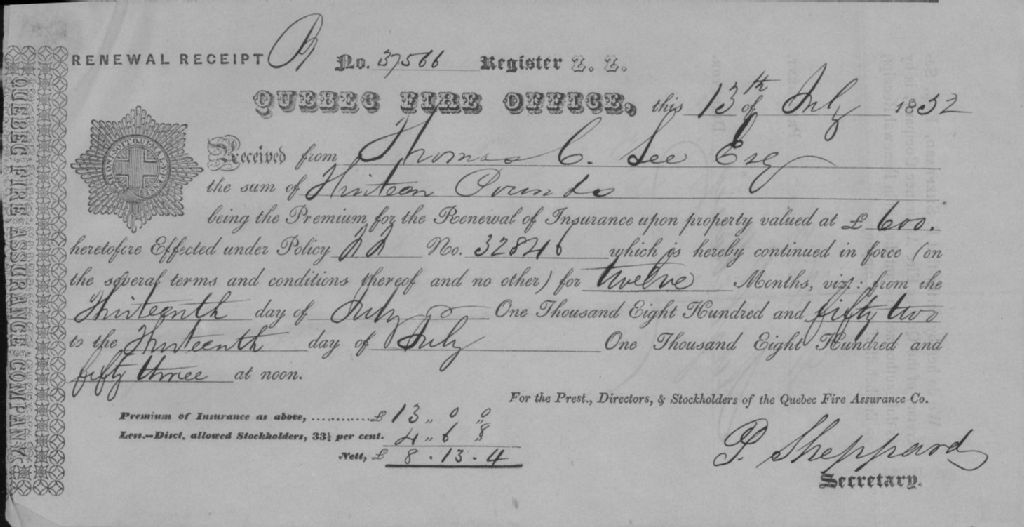 RENEWAL RECEIPT B No. 37566 Register Z. Z.
QUEBEC FIRE OFFICE, this 13th of July 1852
Received from Thomas C. Lee Esq
the sum of Thirteen Pounds
being the Premium for the Renewal of Insurance upon property valued at £ 600.
heretofore Effected under Policy No. 32846 which is hereby continued in force (on
the several terms and conditions thereof and no other) for twelve Months, vizt: from the
Thirteenth day of July One Thousand Eight Hundred and fifty two
to the Thirteenth day of July One Thousand Eight Hundred and
fifty three at noon.
For the Prest., Directors, & Stockholders of the Quebec Fire Assurance Co.
Premium of Insurance as above, ........... £ 13 " 0 " 0
Less.—Disct, allowed Stockholders, 33⅓ per cent. 4 " 6 " 8
Nett, £ 8 . 13 . 4
P. Sheppard
Secretary.
QUEBEC FIRE ASSURANCE COMPANY